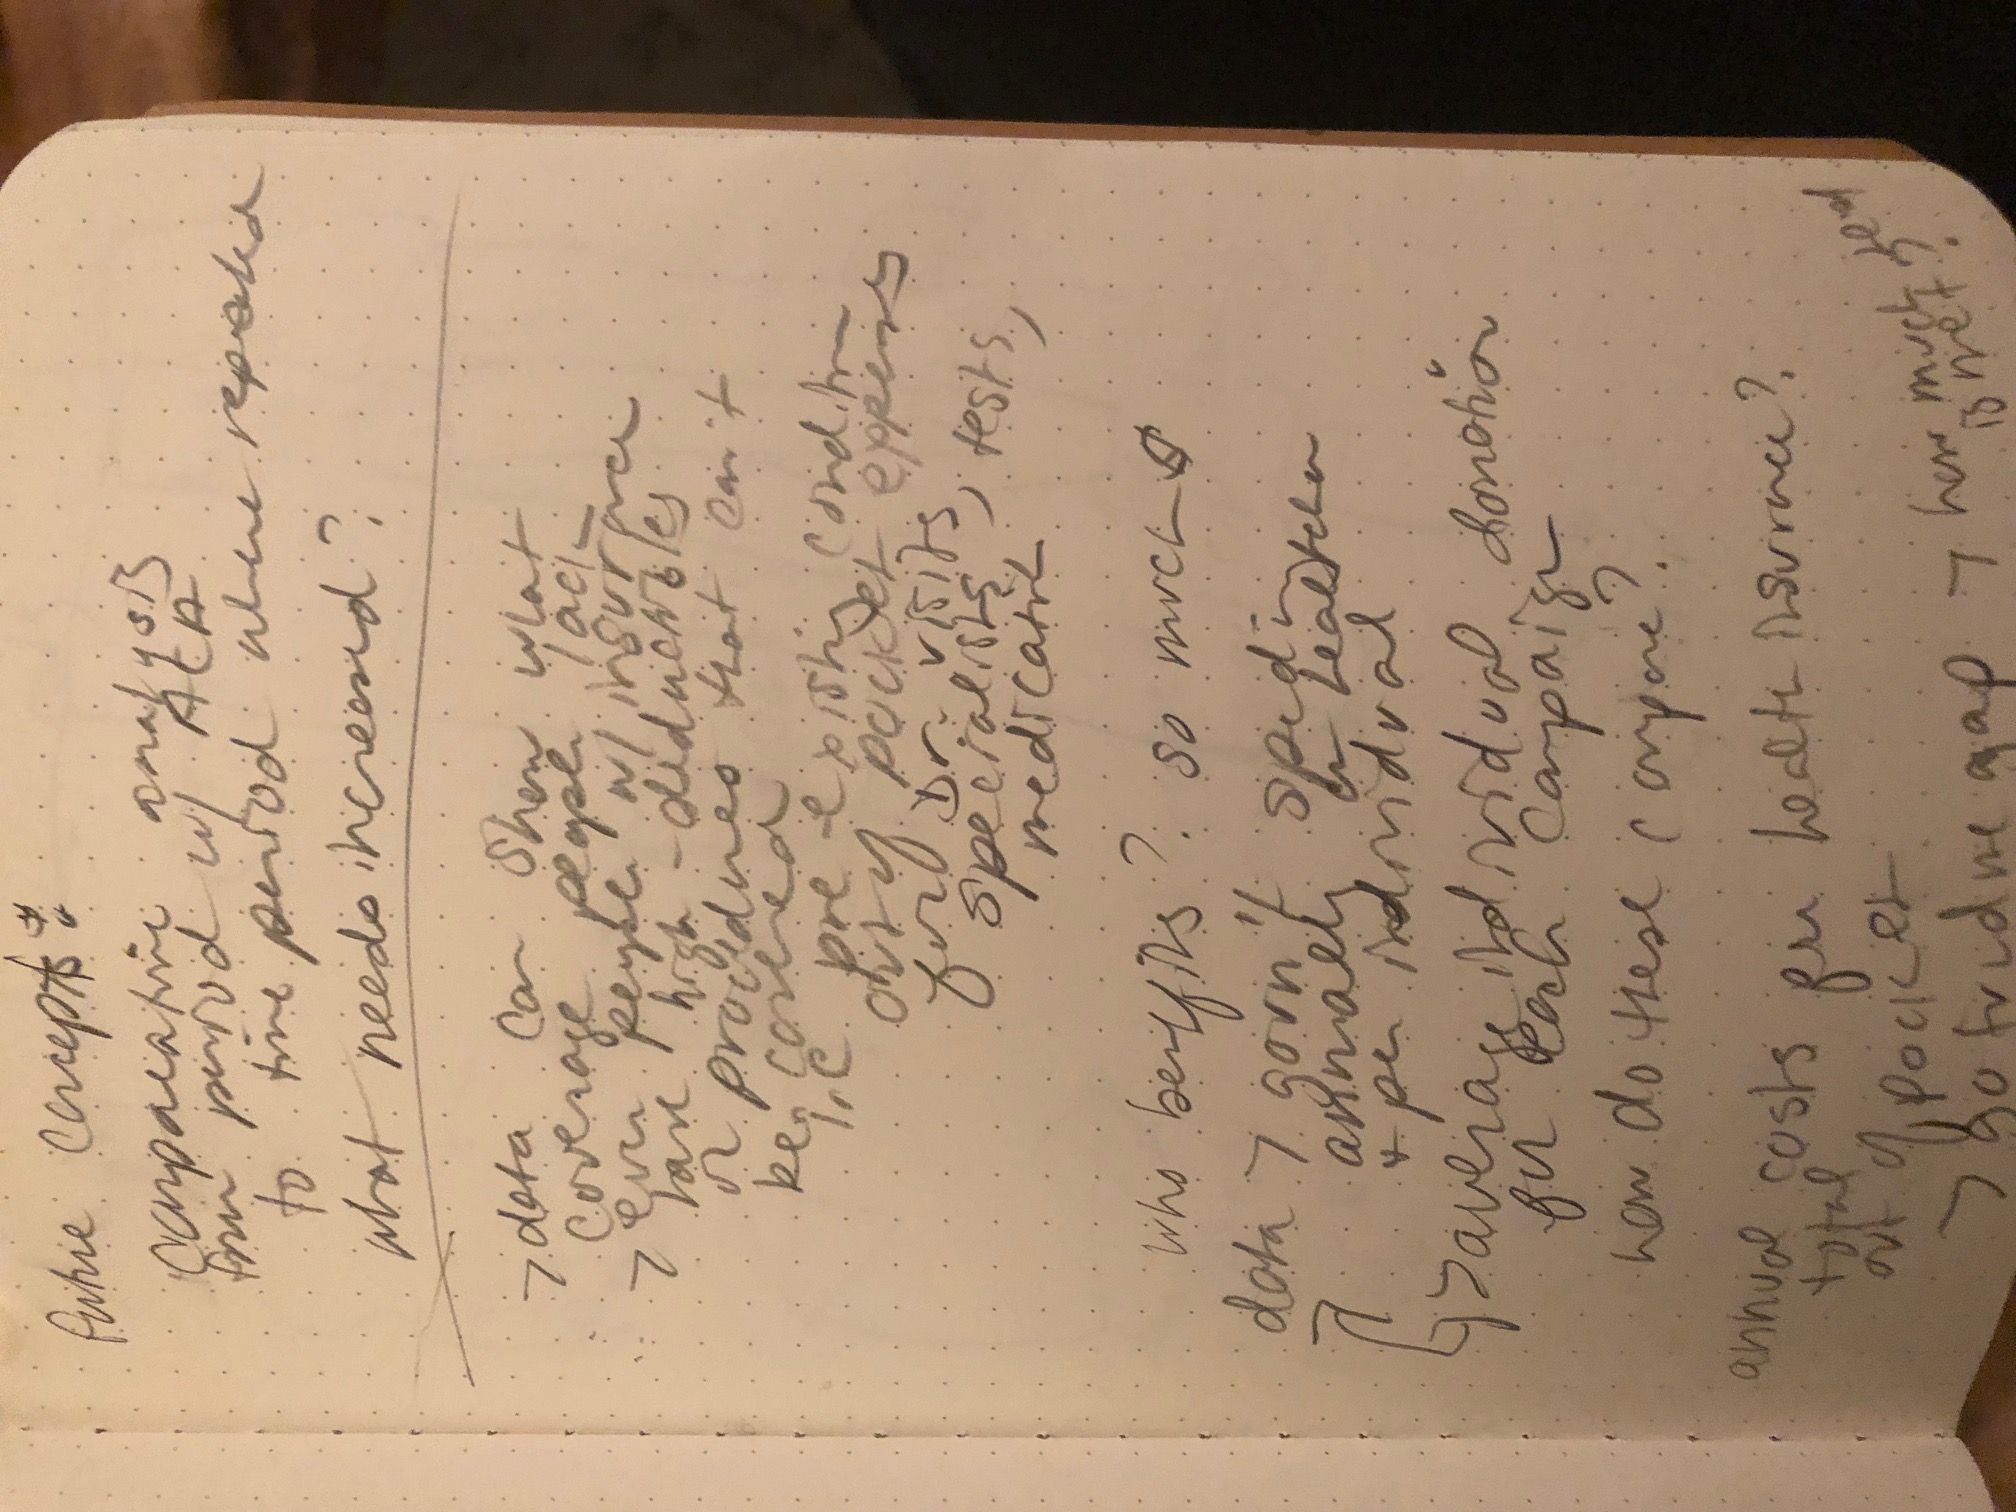 future concepts:
comparative analysis
from period w/ ACA
to time period where repealed
what needs increased?
> data can show what
coverage people lack
> even people w/ insurance
have high-deductibles
or procedures that can't
be covered
i.e pre-existing condition
out of pocket expenses
for Dr. visits,
specialists, tests,
medication
who benefits? so much $
data > govn't spending
annually on healthcare
+ per individual
> average individual donation
for each campaign
how do these compare?
annual costs for health insurance?
total
out of pocket
> gofundme gap → how much need
is met?